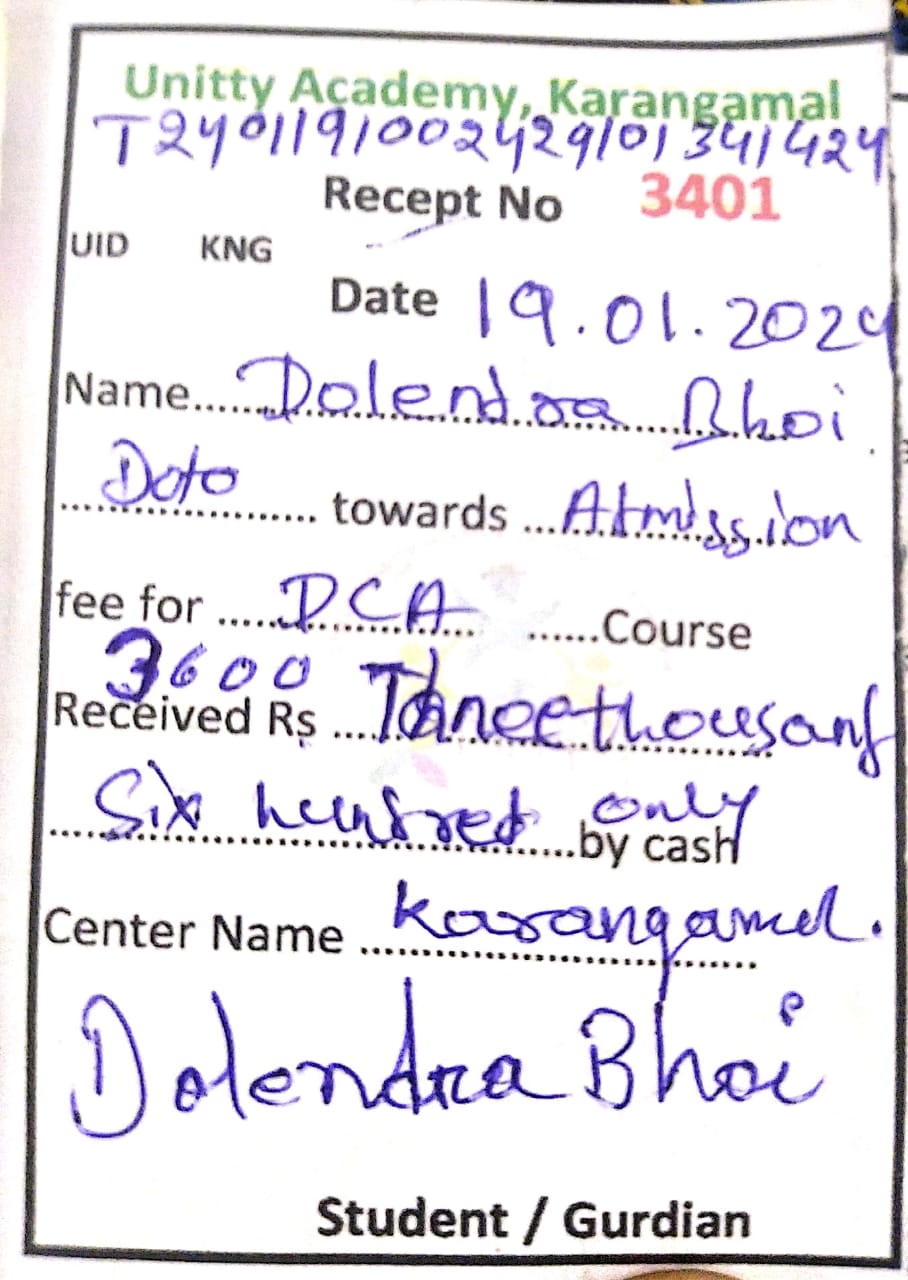 Unitty Academy, Karangamal
T2401191002429101341424
Recept No 3401
UID KNG
Date 19.01.2024
Name......Dolendra Bhoi
Doto ...... towards ...Atmission
fee for .....DCA...... ......Course
3600
Received Rs ....Threethousand
Six hundred only
......by cash
Center Name ......Karangamal.
Dolendra Bhoi
Student / Gurdian